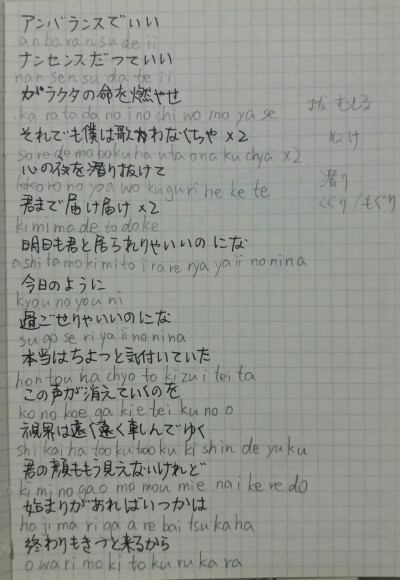 アンバランスでいい
an ba ran su de ii
ナンセンスだっていい
nan sen su da te ii
ガラクタの命を燃やせ
ka ra ta da no i no chi wo mo ya se
それでも僕は歌わなくちゃ ×2
so re de mo boku ha uta o na ku chya ×2
心の夜を潜り抜けて
kokoro no yoa wo kuguri ne ke te
君まで届け届け ×2
ki mi ma de to do ke
明日も君と居られりゃいいのにな
ashi ta mo ki mi to i ra re rya ya ii no ni na
今日のように
kyou no you ni
過ごせりゃいいのにな
su go se ri ya ii no ni na
本当はちょっと気付いていた
hon tou ha chyo to ki zu i tei ta
この声が消えていくのを
ko no koe ga kie tei ku no o
視界は遠く遠く軋んでゆく
shi kai ha too ku too ku ki shin de yu ku
君の顔ももう見えないけれど
ki mi no ga o mo mou mie nai ke re do
始まりがあればいつかは
ha ji ma ri ga a re ba i tsu ka ha
終わりもきっと来るから
o wari mo ki to ku ru ka ra
抜
ぬけ
潜り
くぐり/もぐり